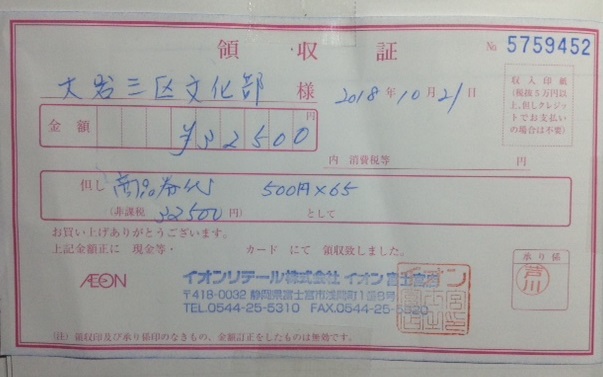 領収証
№ 5759452
大岩三区文化部 様
2018年10月21日
収入印紙
(税抜5万円以
上、但しクレジッ
トでお支払い
の場合は不要)
金額 ¥32500 円
内 消費税等 円
但し 商品券代 500円×65
(非課税 32500 円) として
お買い上げありがとうございます。
上記金額正に 現金等・ カード にて 領収致しました。
承り係
AEON
イオンリテール株式会社 イオン富士宮店
〒418-0032 静岡県富士宮市浅間町1番8号
TEL.0544-25-5310 FAX.0544-25-5320
(注)領収印及び承り係印のなきもの、金額訂正をしたものは無効です。